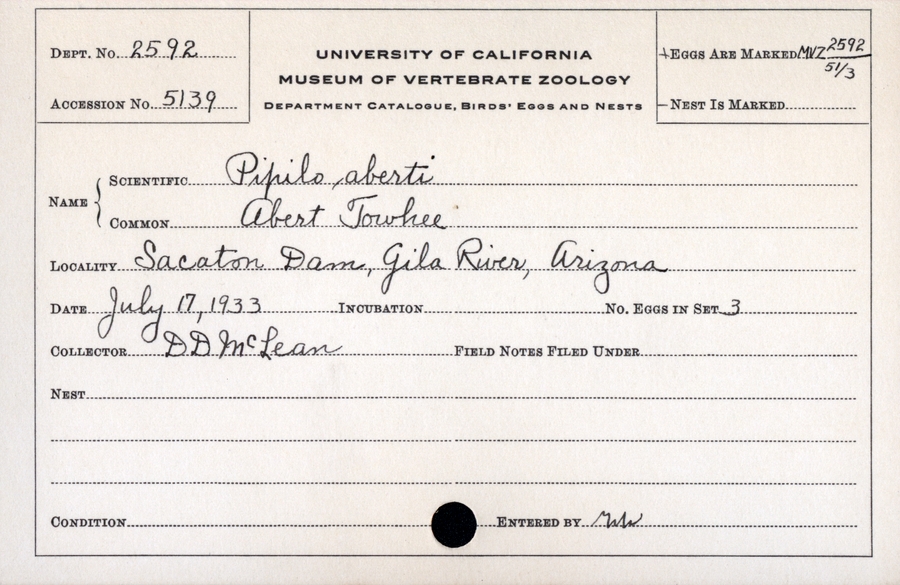 Dept. No. 2592
Accession No. 5139
UNIVERSITY OF CALIFORNIA
MUSEUM OF VERTEBRATE ZOOLOGY
Department Catalogue, Birds' Eggs and Nests
Eggs Are Marked MVZ 2592
51/3
Nest Is Marked
Name
Scientific Pipilo aberti
Common Abert Towhee
Locality Sacaton Dam, Gila River, Arizona
Date July 17, 1933 Incubation No. Eggs in Set 3
Collector D D McLean Field Notes Filed Under
Nest
Condition Entered by